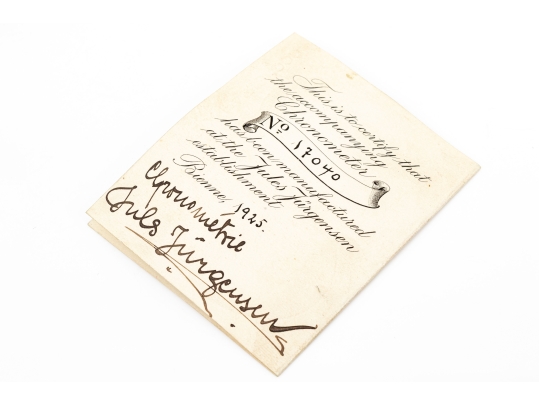 This is to certify, that
the accompanying
Chronometer
No 17040
has been manufactured
at the Jules Jürgensen
establishment
Bienne, 1925.
Chronometrie
Jules Jürgensen